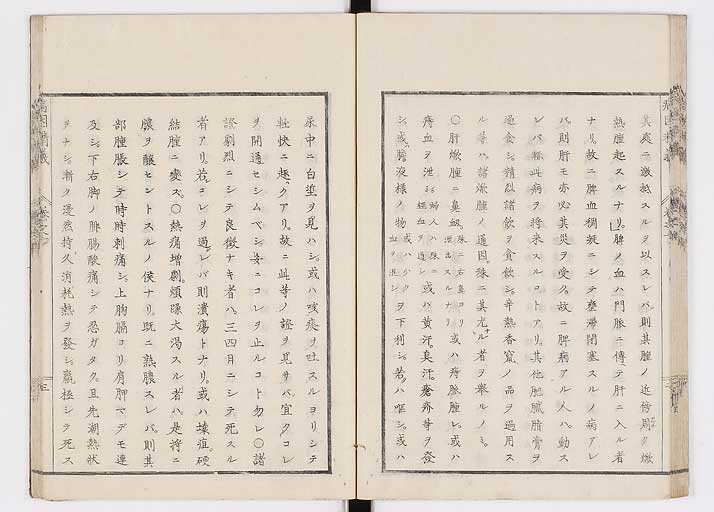 其處ニ激抵スルヲ以スレバ則其腫ノ近傍周ク焮
熱腫起スルナリ脾ノ血ハ門脈ニ傳テ肝ニ入ル者
ナリ。故ニ脾血稠凝ニシテ壅滯閉塞スルノ病アレ
バ則肝モ亦必其災ヲ受ク故ニ脾病アル人ハ動ス
レバ輙此病ヲ將来スルコトアリ。其他肥膩脂膏ヲ
過食シ鋭烈諸飲ヲ貪飲シ辛熱香竄ノ品ヲ過用ス
ル等ハ諸焮腫ノ通因殊ニ其尤ナル者ヲ舉ルノミ。
〇肝焮腫ニ鼻衂 殊ニ右鼻コリ
泄出スルナリ 或ハ痔脈腫レ或ハ
痔血ヲ泄シ 婦人ハ殊ニ
經血ヲ通シ 或ハ黄汗。臭汗。瘡疥等ヲ發
シ或ハ膿液様ノ物 或ハ少ク
血ヲ混シ ヲ下利シ。若クハ嘔シ。或ハ
尿中ニ白埿ヲ見ハシ或ハ咳痰ヲ吐スルヨリシテ
輕快ニ趣クアリ。故ニ此等ノ證ヲ見サバ。宜クコレ
ヲ開通セシムベシ妄ニコレヲ止ルコト勿レ〇諸
證劇烈ニシテ良徴ナキ者ハ三四月ニシテ死スル
者アリ。若コレヲ過レバ則潰瘍トナリ。或ハ壊疽硬
結腫ニ變ス。〇熱痛増劇煩躁大渇スル者ハ是將ニ
膿ヲ醸セントスルノ候ナリ。既ニ熟膿スレバ。則其
部腫脹シテ時時刺痛シ上胸膈コリ肩胛マデモ連
及シ下右脚ノ腓腸酸痛シテ忍ガタク。且先潮熱狀
ヲナシ漸ク漫然持久消耗熱ヲ發シ羸極シテ死ス